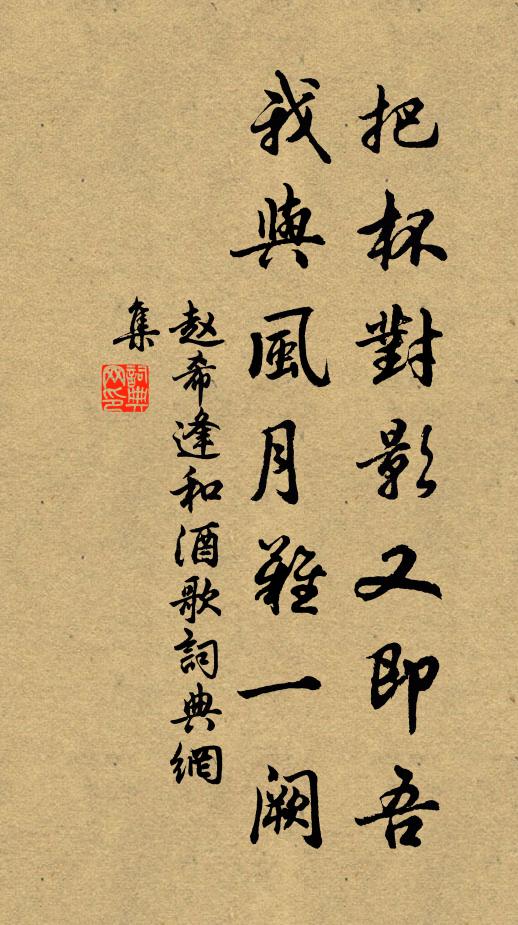 把杯對影又即吾
我與風月難一闕
趙希逢和酒歌詞典網
集
詞典
网印